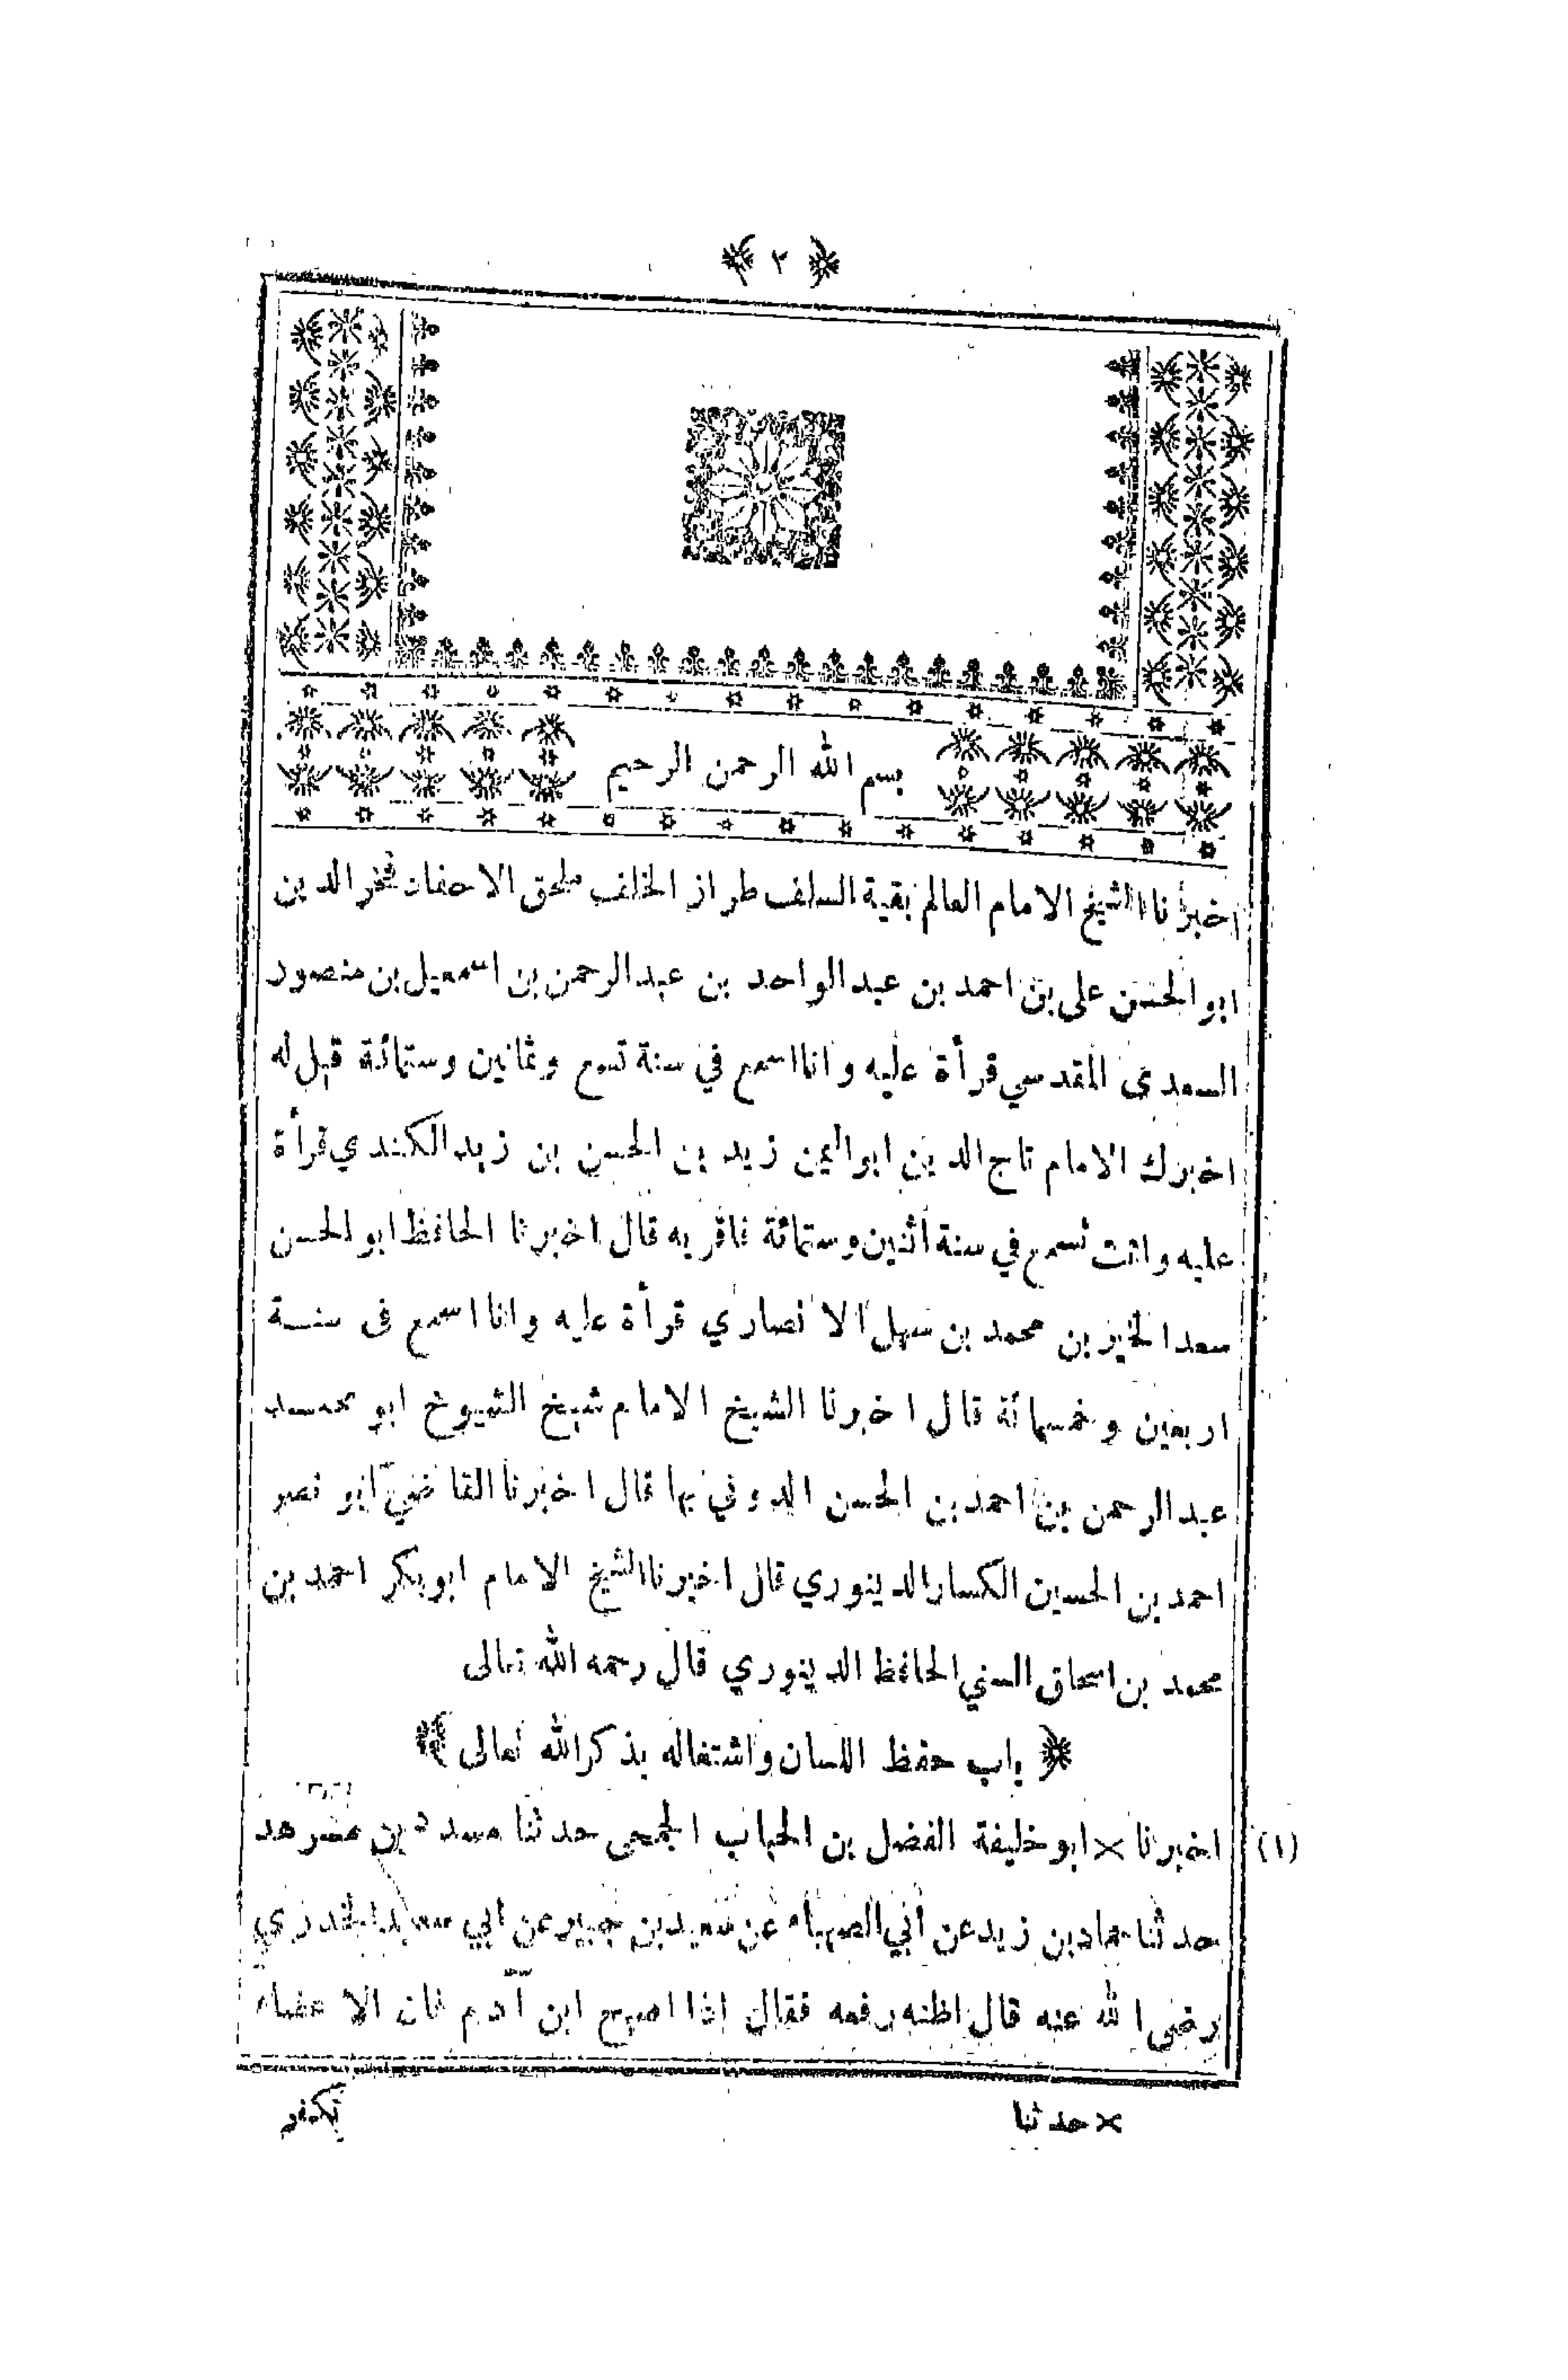 ﴿ ٢ ﴾
بسم الله الرحمن الرحيم
اخبرنا الشيخ الامام العالم بقية السلف طراز الخلف ملحق الاحفاد فخر الدين
ابو الحسن على بن احمد بن عبد الواحد بن عبد الرحمن بن اسمعيل بن منصور
السعدى المقدسي قرأة عليه وانا اسمع في سنة تسع وثمانين وستمائة قيل له
اخبرك الامام تاج الدين ابو اليمن زيد بن الحسن بن زيد الكندي قرأة
عليه وانت تسمع في سنة اثنين وستمائة فاقر به قال اخبرنا الحافظ ابو الحسن
سعد الخير بن محمد بن سهل الانصاري قرأة عليه وانا اسمع فى سنة
اربعين وخمسمائة قال اخبرنا الشيخ الامام شيخ الشيوخ ابو محمد
عبد الرحمن بن احمد بن الحسن الدوني بها قال اخبرنا القاضي ابو نصر
احمد بن الحسين الكسار الدينوري قال اخبرنا الشيخ الامام ابو بكر احمد بن
محمد بن اسحاق السني الحافظ الدينوري قال رحمه الله تعالى
﴿ باب حفظ اللسان واشتغاله بذكر الله تعالى ﴾
(١) اخبرنا × ابو خليفة الفضل بن الحباب الجمحى حدثنا مسدد بن مسرهد
حدثنا حماد بن زيد عن أبي الصهباء عن سعيد بن جبير عن ابي سعيد الخدري
رضى الله عنه قال اظنه رفعه فقال اذا اصبح ابن آدم فان الاعضاء
× حدثنا
تكفر